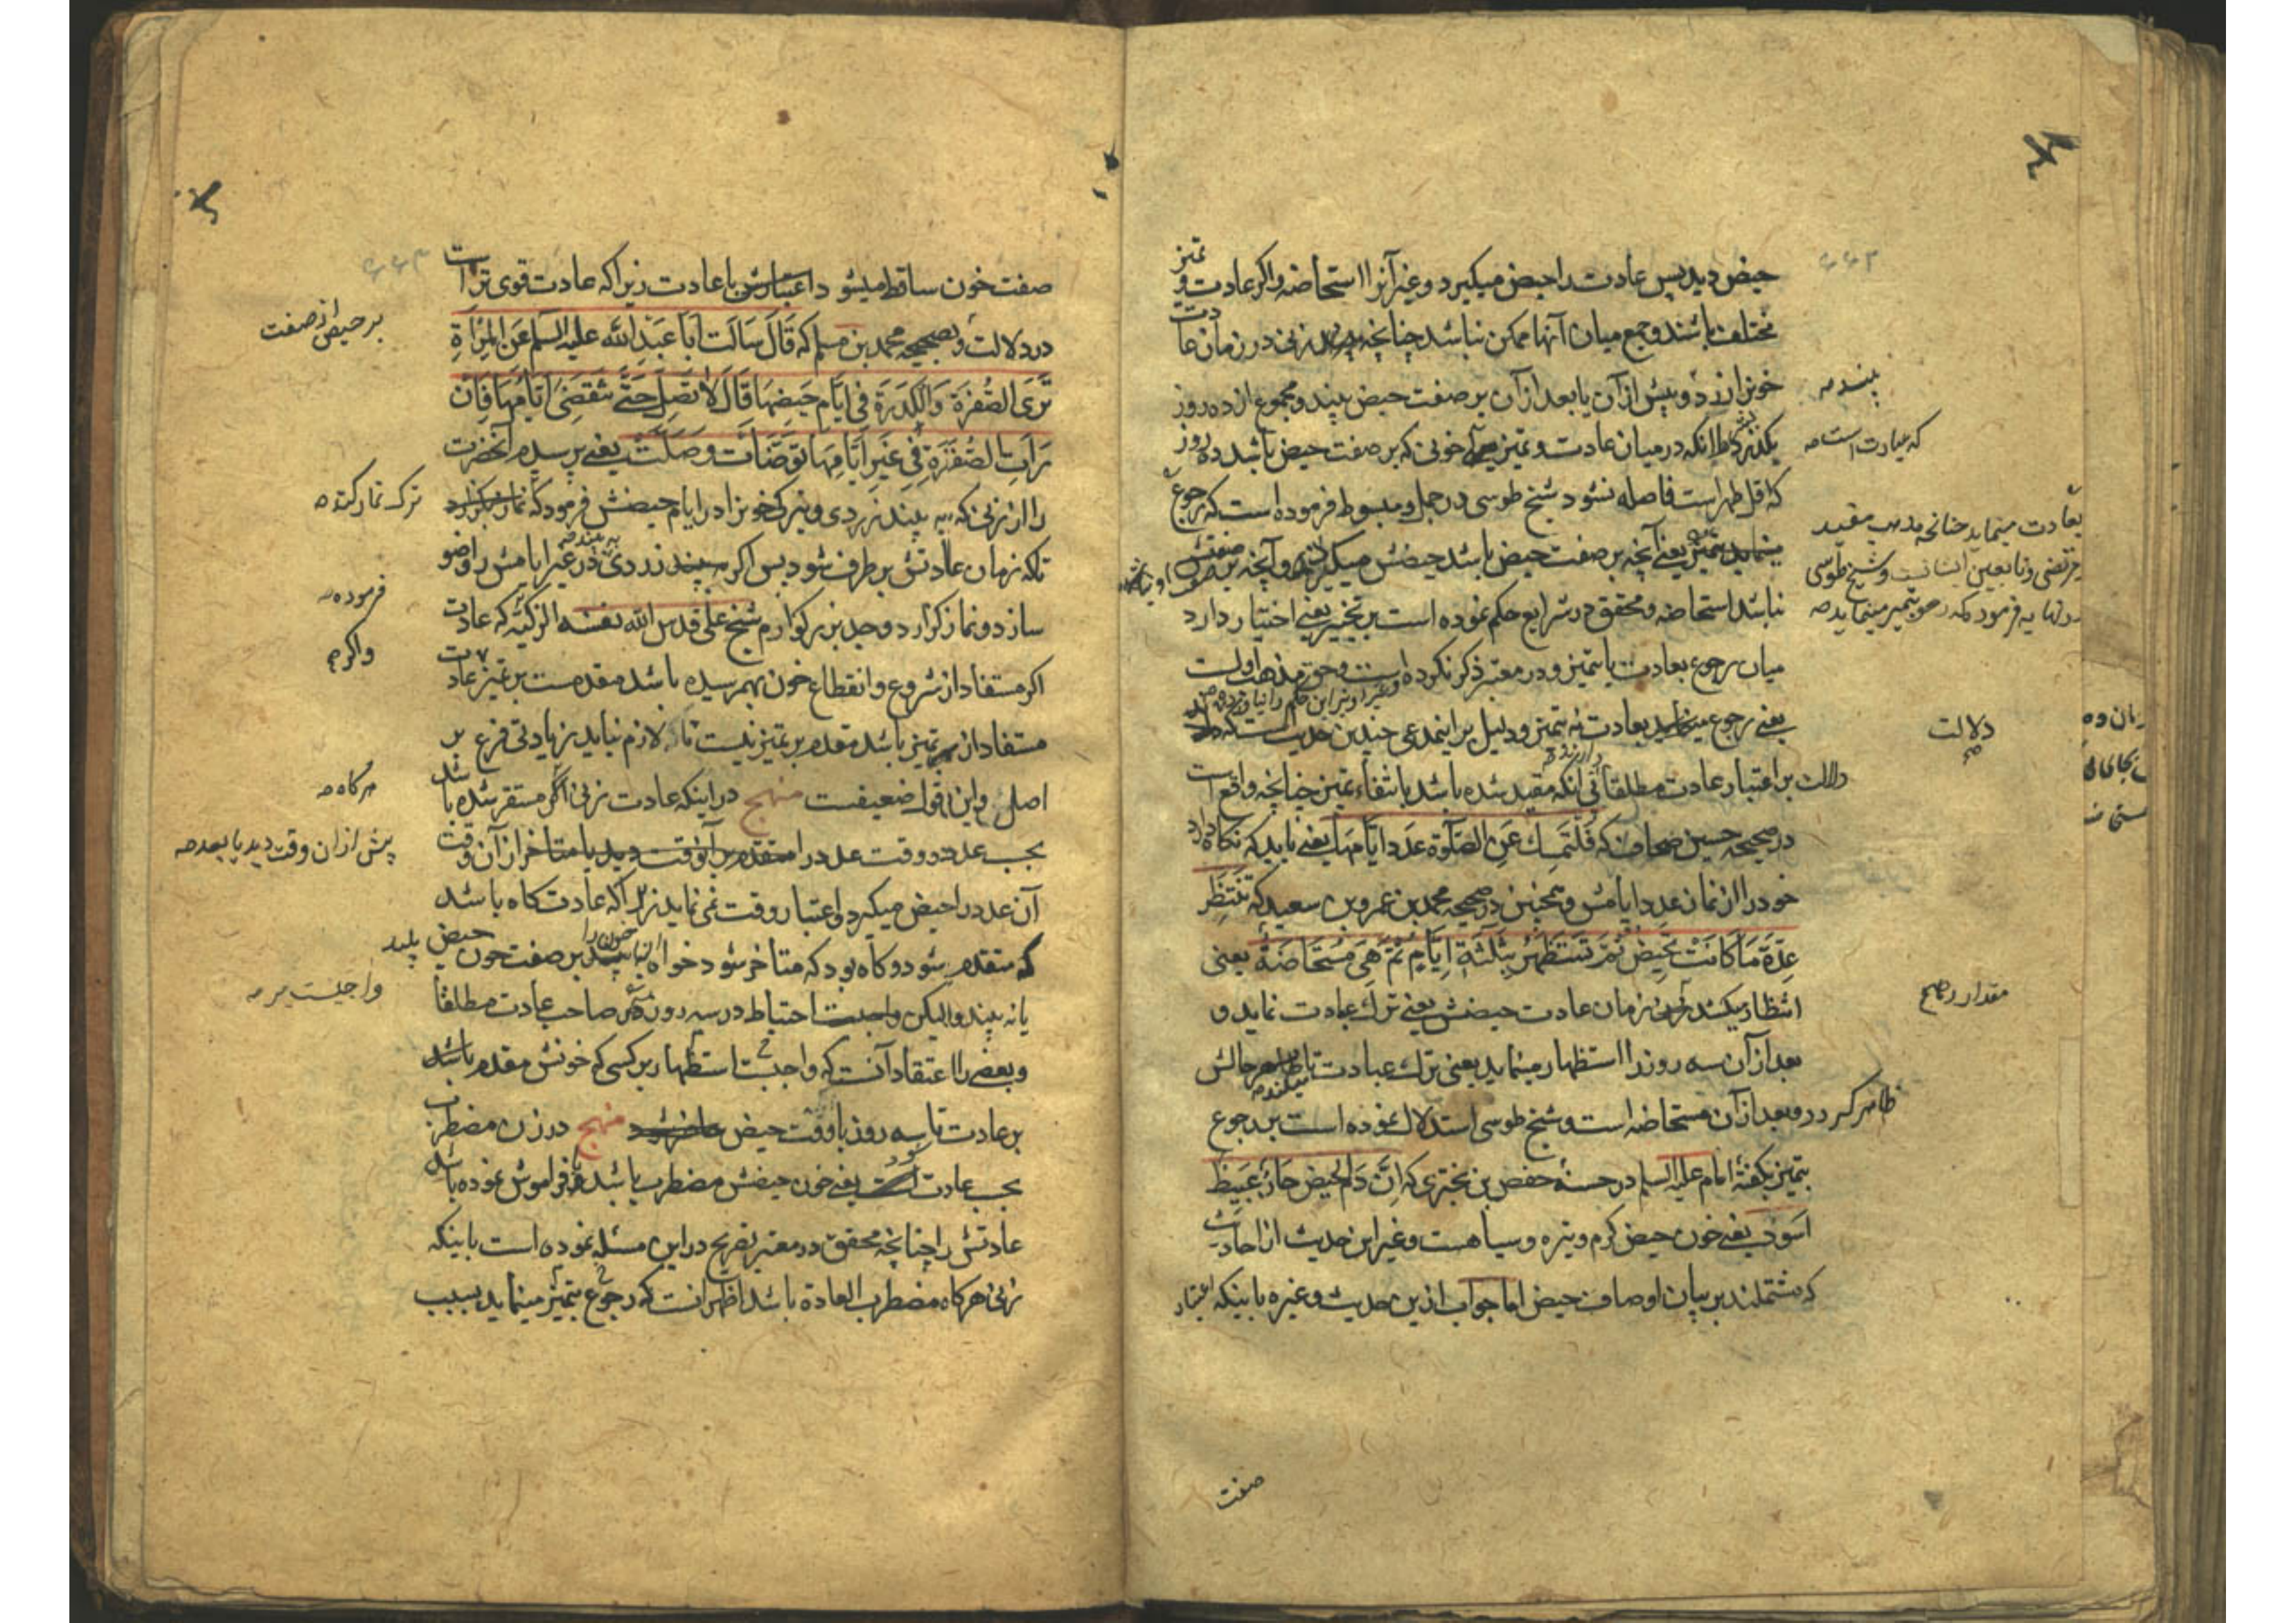 حیض دید پس عادت را حیض میکیرد و غیر آنرا استحاضه واکر عادت و تمیز
مختلف باشند و جمع میان آنها ممکن نباشد چنانچه زنی در زمان عادت
خون زرد و پیش از آن یا بعد از آن بر صفت حیض بیند و مجموع از ده روز
بکذرد یا انکه در میان عادت و تمیز خونی که بر صفت حیض باشد ده روز
که اقل طهر است فاصله نشود شیخ طوسی در جمل و مبسوط فرموده است که رجوع
مینماید بتمیز یعنی آنچه بر صفت حیض باشد حیضش میکیرد و آنچه بر صفتش
نباشد استحاضه و محقق در شرایع حکم نموده است بر تخییر یعنی اختیار دارد
میان رجوع بعادت یا تمیز و در معتبر ذکر نکرده است و حق مذهب اولست
یعنی رجوع بعادت نه تمیز و دلیل بر اینمدعی چندین حدیث است که
دلالت بر اعتبار عادت مطلقا بی انکه مقید شده باشد بانتفاء تمیز چنانچه واقع است
در صحیحه حسین صحاف که فَلْتُمْسِكْ عَنِ الصَّلٰوةِ عَدَدَ اَیَّامِهَا یعنی باید که نکاه دارد
خود را از نماز عدد ایامش و همچنین در صحیحه محمد بن عمرو بن سعید که تَنْتَظِرُ
عِدَّةَ مَا كَانَتْ تَحِيضُ ثُمَّ تَسْتَظْهِرُ بِثَلٰثَةِ اَيَّامٍ ثُمَّ هِيَ مُسْتَحَاضَةٌ یعنی
انتظار میکشد زمان عادت حیضش یعنی ترک عبادت نماید و
بعد از آن سه روز را استظهار مینماید یعنی ترک عبادت میکند تا حالش
ظاهر کردد و بعد از آن مستحاضه است و شیخ طوسی استدلال نموده است بر رجوع
بتمیز بکفتهٔ امام علیه السلم در حسنهٔ حفص بن بختری که اِنَّ دَمَ الْحَيْضِ حَارٌّ عَبِيطٌ
اَسْوَدُ یعنی خون حیض کرم و تیره و سیاهست و غیر این حدیث از احادیث
که مشتملند بر بیان اوصاف حیض اما جواب ازین حدیث و غیره باینکه اعتبار
بیند صه
که عبارت است صه
بعادت مینماید چنانچه مذهب مفید
مرتضی و تابعین ایشانست و شیخ طوسی
در نهایه فرموده که رجوع بتمیز مینماید صه
دلالت
مقدار صح
صفت
صفت خون ساقط میشود با عادت زیرا که عادت قوی تر است
در دلالت و بصحیحه محمد بن مسلم که قَالَ سَاَلْتُ اَبَا عَبْدِ اللّٰهِ علیه السلم عَنِ الْمَرْاَةِ
تَرَى الصُّفْرَةَ وَالْكُدْرَةَ فِي اَيَّامِ حَيْضِهَا قَالَ لَا تُصَلِّ حَتّٰى تَنْقَضِيَ اَيَّامُهَا فَاِنْ
رَاَتِ الصُّفْرَةَ فِي غَيْرِ اَيَّامِهَا تَوَضَّاَتْ وَصَلَّتْ یعنی پرسیدم آنحضرت
را از زنی که بیند زردی و تیرکی خونرا در ایام حیضش فرمود که نماز نکزارد
تا که زمان عادتش بر طرف شود پس اکر بیند زردی در غیر ایامش را وضو
سازد و نماز کزارد و جد بزرکوارم شیخ علی قدس الله نفسه الزکیه که عادت
اکر مستفاد از شروع و انقطاع خون بهم رسیده باشد مقدمست بر تمیز عادت
مستفاد از تمیز باشد مقدم بر تمیز نیست تا که لازم نیاید زیادتی فرع بر
اصل و این قول ضعیفست منهج در اینکه عادت زنی اکر مستقر شده باشد
بحسب عدد و وقت عدد را متقدم بر آنوقت دید یا متاخر از آن وقت
آن عدد را حیض میکیرد و اعتبار وقت نمی نماید زیرا که عادت کاه باشد
که متقدم شود و کاه بود که متاخر شود خواه آن خون را بر صفت خون حیض بیند
یا نه بیند ولیکن واجبست احتیاط در سه روز صاحب عادت مطلقا
و بعضی را اعتقاد آنست که واجبست استظهار بر کسی که خونش مقدم باشد
بر عادت تا سه روز یا وقت حیض حاضر شود منهج در زن مضطرب
بحسب عادت یعنی خون حیضش مضطرب باشد و فراموش نموده باشد
عادتش را چنانچه محقق در معتبر تصریح در این مسئله نموده است باینکه
زنی هرکاه مضطرب العادة باشد اظهر آنست که رجوع بتمیز مینماید بسبب
بر حیض از صفت
ترک نماز کند صه
فرموده صه
واکر صه
هرکاه صه
پیش از ان وقت دید یا بعد صه
واجبست بر صه